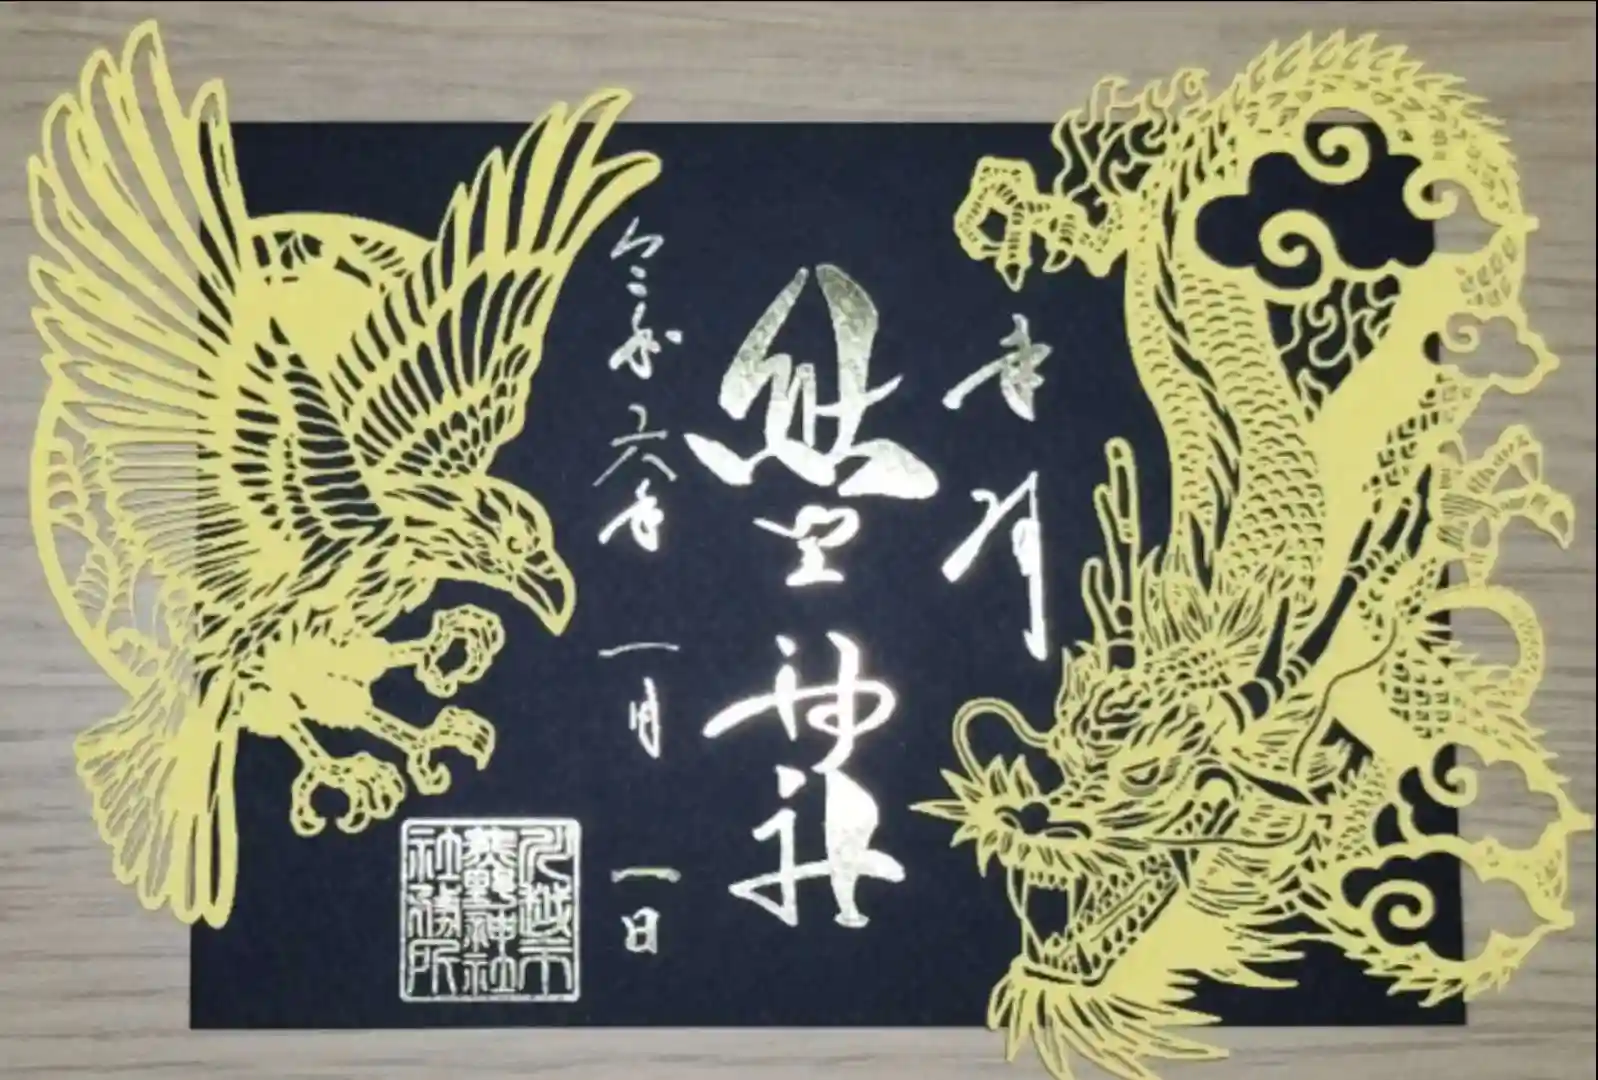 奉拝
熊野神社
令和六年 一月 一日
川越市
熊野神社
社務所